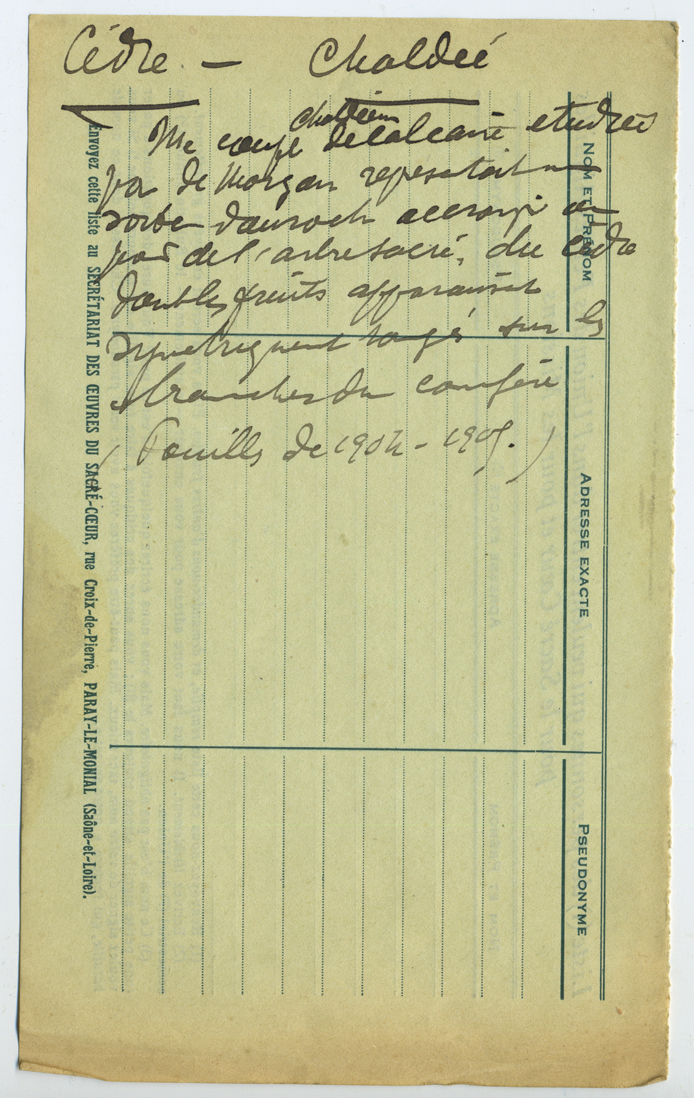 Cèdre — Chaldée
chaldéen
Une coupe de calcaire étudiée
par de Morgan represétait un
sorte d'auroch accroupi au
pied de l'arbre sacré, du cèdre
doubles fruits apparaissent
symetriquement rangés sur les
branches du conifère
(Fouilles de 1904-1905.)
NOM ET PRÉNOM
ADRESSE EXACTE
PSEUDONYME
Envoyez cette liste au SECRÉTARIAT DES ŒUVRES DU SACRÉ-CŒUR, rue Croix-de-Pierre, PARAY-LE-MONIAL (Saône-et-Loire).